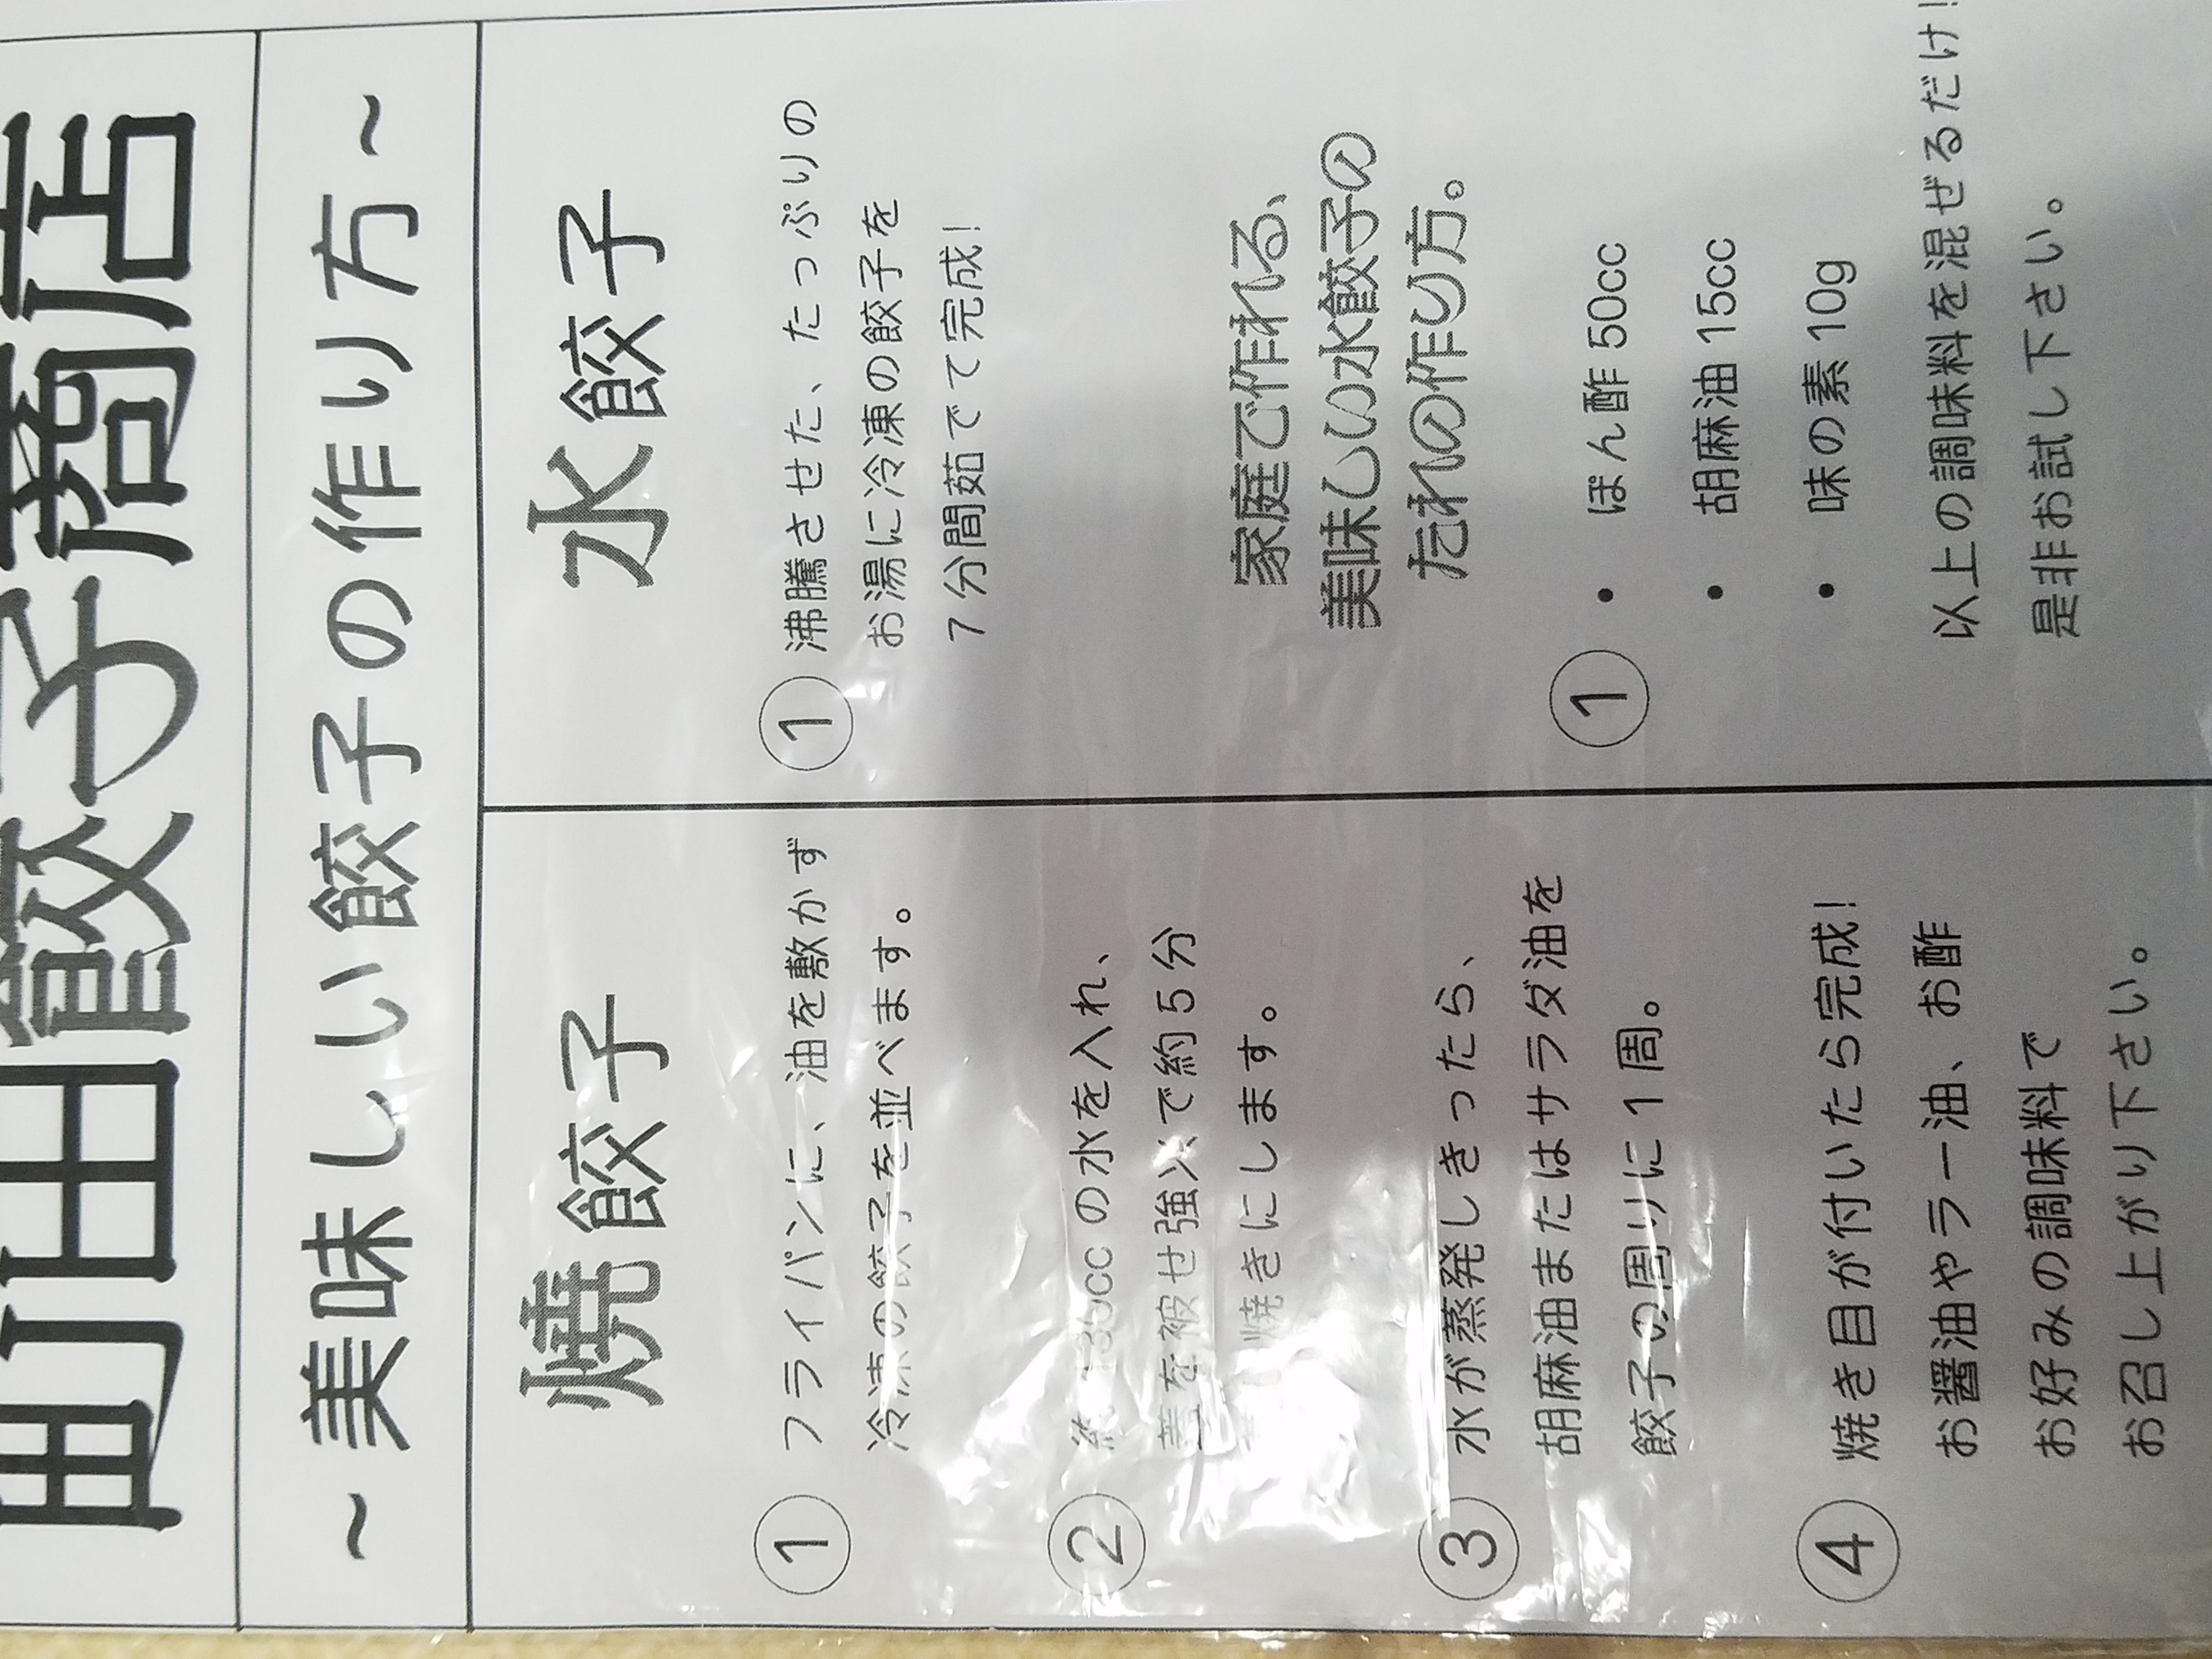 町田餃子商店
~美味しい餃子の作り方~
焼餃子
① フライパンに、油を敷かず
冷凍の餃子を並べます。
② ccの水を入れ、
蓋を被せ強火で約5分
焼きにします。
③ 水が蒸発しきったら、
胡麻油またはサラダ油を
餃子の周りに1周。
④ 焼き目が付いたら完成!
お醤油やラー油、お酢
お好みの調味料で
お召し上がり下さい。
水餃子
① 沸騰させた、たっぷりの
お湯に冷凍の餃子を
7分間茹でて完成!
家庭で作れる、
美味しい水餃子の
たれの作り方。
① ・ ぽん酢 50cc
・ 胡麻油 15cc
・ 味の素 10g
以上の調味料を混ぜるだけ!
是非お試し下さい。